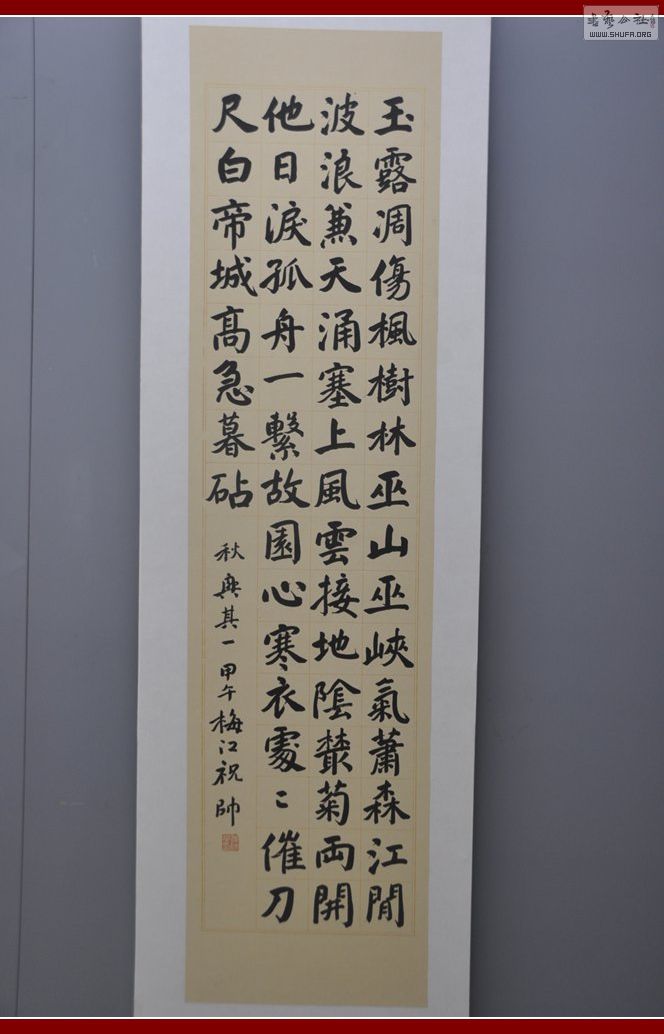 玉露凋傷楓樹林巫山巫峽氣蕭森江間
波浪兼天涌塞上風雲接地陰叢菊兩開
他日淚孤舟一繫故園心寒衣處〻催刀
尺白帝城高急暮砧
秋興其一甲午梅江祝帥
書藝公社
WWW.SHUFA.ORG